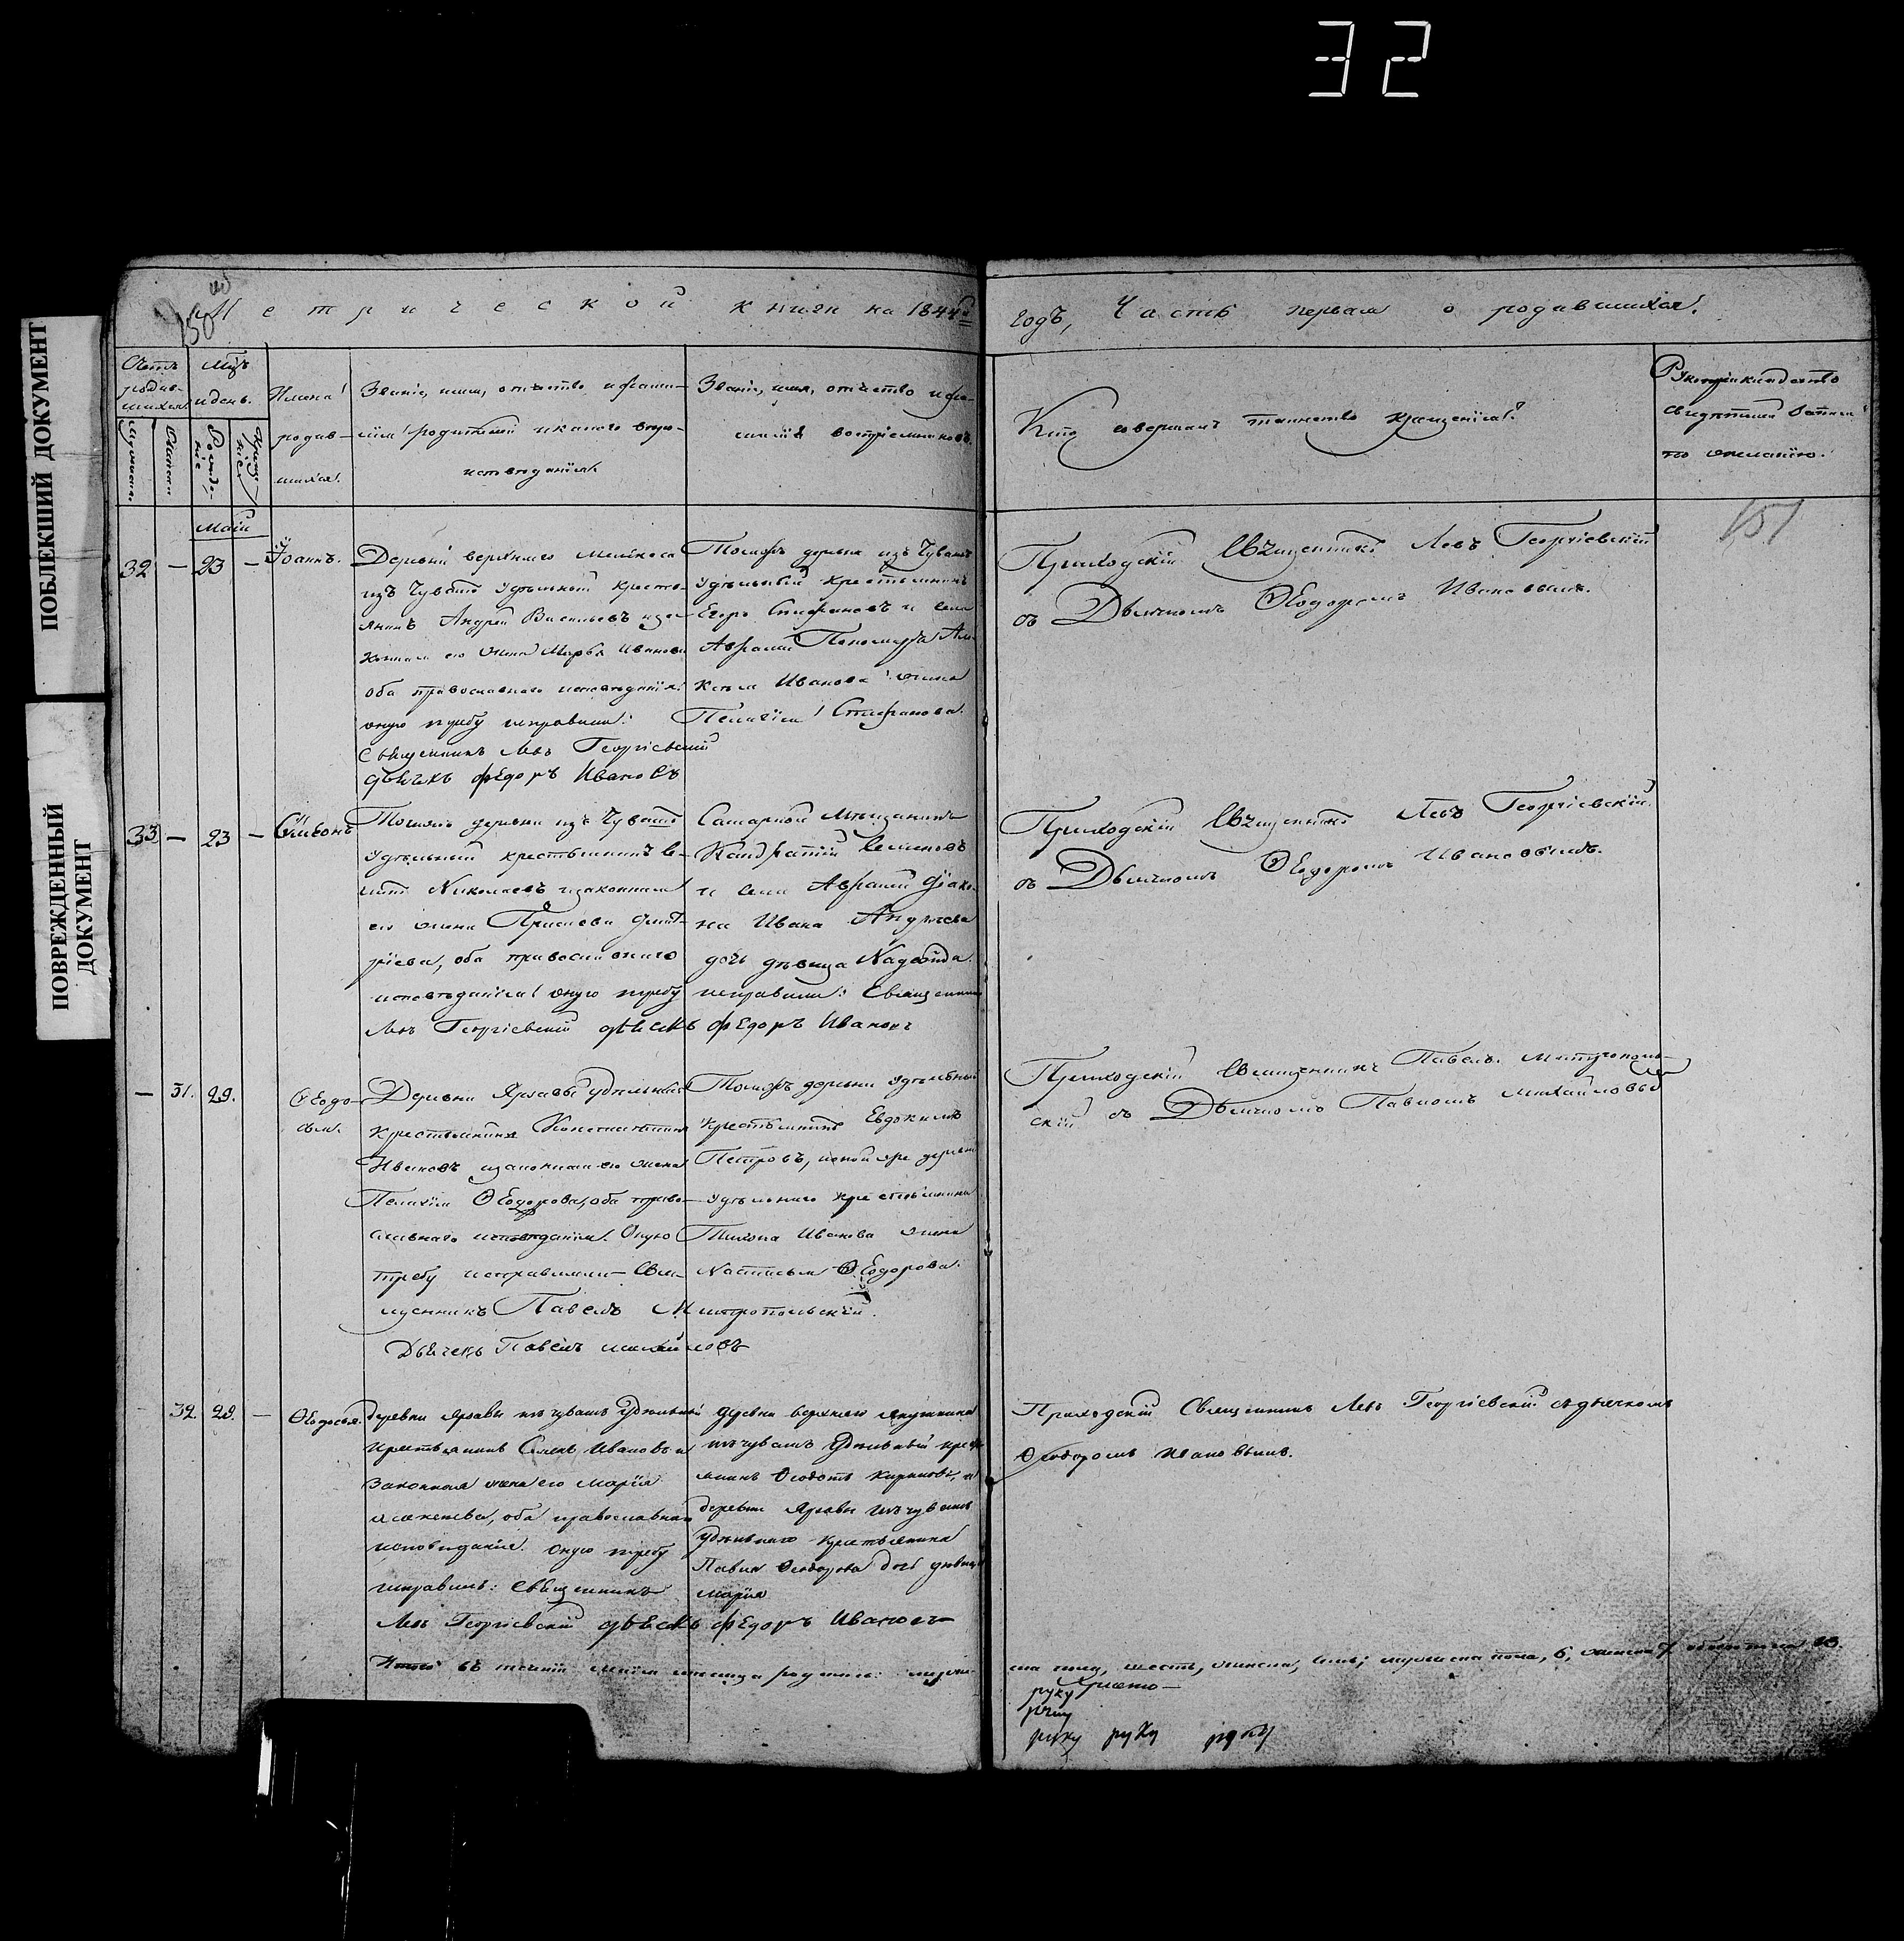 32
ПОБЛЕКШИЙ ДОКУМЕНТ
ПОВРЕЖДЕННЫЙ
ДОКУМЕНТ
150
Метрической книги на 1844й
годъ, Часть первая о родившихся.
Счетъ
родив-
шихся.
Мцъ
и день.
Имена
родив-
шихся.
Званіе, имя, отчество и фами-
лія родителей и какого веро-
исповѣданія.
Званіе, имя, отчество и фа-
милія воспріемниковъ.
Кто совершалъ таинство крещенія?
Рукоприкладство
свидѣтелей записи
по желанію.
Маія
151
32 — 23 — Іоаннъ.
Деревни верхняго Мелекеса
изъ Чувашъ удѣльный кресть-
янинъ Андрей Васильевъ и за-
конная его жена Марѳа Иванова
оба православнаго исповѣданія
оную требу исправили:
Священникъ Левъ Георгіевскій
дьячкъ федоръ Ивановъ
Тойжъ деревни изъ Чувашъ
удѣльный крестьянинъ
Егоръ Стефановъ и села
Авралей Пономаря Але-
ксѣя Иванова жена
Пелагія Стефанова.
Приходскій Священникъ Левъ Георгіевскій
съ Дьячкомъ Ѳеодоромъ Ивановымъ.
33 — 23 — Симеонъ
Тойжъ деревни изъ Чувашъ
удѣльный крестьянинъ
Николаевъ и законная
его жена Дмит-
ріева, оба православнаго
исповѣданія оную требу исправили: Священникъ
Левъ Георгіевскій дьячкъ федоръ Ивановъ
Самарской Мѣщанинъ
Кондратій Семеновъ
и села Авралей діако-
на Ивана Андреева
дочь дѣвица Надежда.
Приходскій Священникъ Левъ Георгіевскій.
съ Дьячкомъ Ѳеодоромъ Ивановымъ.
— 31. 29.
Ѳеодо-
сья.
Деревни удѣльный
крестьянинъ Константинъ
Ивановъ и законная его жена
Пелагія Ѳеодорова, оба право-
славнаго исповѣданія. Оную
требу исправляли Свя-
щенникъ Павелъ Митропольскій.
Дьячекъ Павелъ Михайловъ
Тойжъ деревни удѣльный
крестьянинъ Евдокимъ
Петровъ, и той же деревни
удѣльнаго крестьянина
Тихона Иванова жена
Настасья Ѳеодорова.
Приходскій Священникъ Павелъ Митрополь-
скій съ Дьячкомъ Павломъ Михайловымъ
32. 29. — Ѳеодосья.
деревни изъ чувашъ удѣльный
крестьянинъ Ивановъ и
законная жена его Марія
оба православнаго
исповѣданія. оную требу
исправилъ: Священникъ
Левъ Георгіевскій дьячкъ федоръ Ивановъ
деревни верхняго Якушкина
изъ чувашъ удѣльный кресть-
янинъ Ѳеодотъ Кириловъ, и
деревни изъ чувашъ
удѣльнаго крестьянина
Павла Ѳеодорова дочь дѣвица
Марія
Приходскій Священникъ Левъ Георгіевскій съ дьячкомъ
Ѳеодоромъ Ивановымъ.
Итого въ теченіи маія мѣсяца родилось: мужес-
ка пола, шесть, женска, семь; мужеска пола, 6, женска 7. обоего пола 13.
руку
руку руку руку